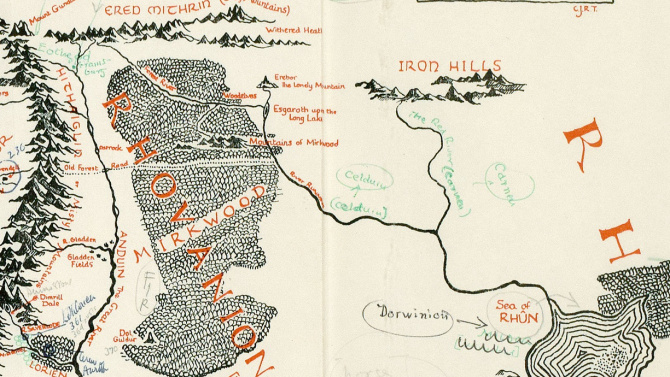 ERED MITHRIN
Withered Heath
C.J.R.T.
Forest River
Erebor
the Lonely Mountain
IRON HILLS
Woodelves
Esgaroth upon the
Long Lake
Mountains of Mirkwood
Carrock
Old Forest Road
River Running
The Red Water (Carnen)
Carnen
Celduin
(Celduin)
RHOVANION
MIRKWOOD
R H
Misty
Mountains
R. Gladden
Gladden
Fields
ANDUIN the Great River
Dimrill
Dale
FIR
Dol
Guldur
LORIEN
Dorwinion
Sea of
RHÛN